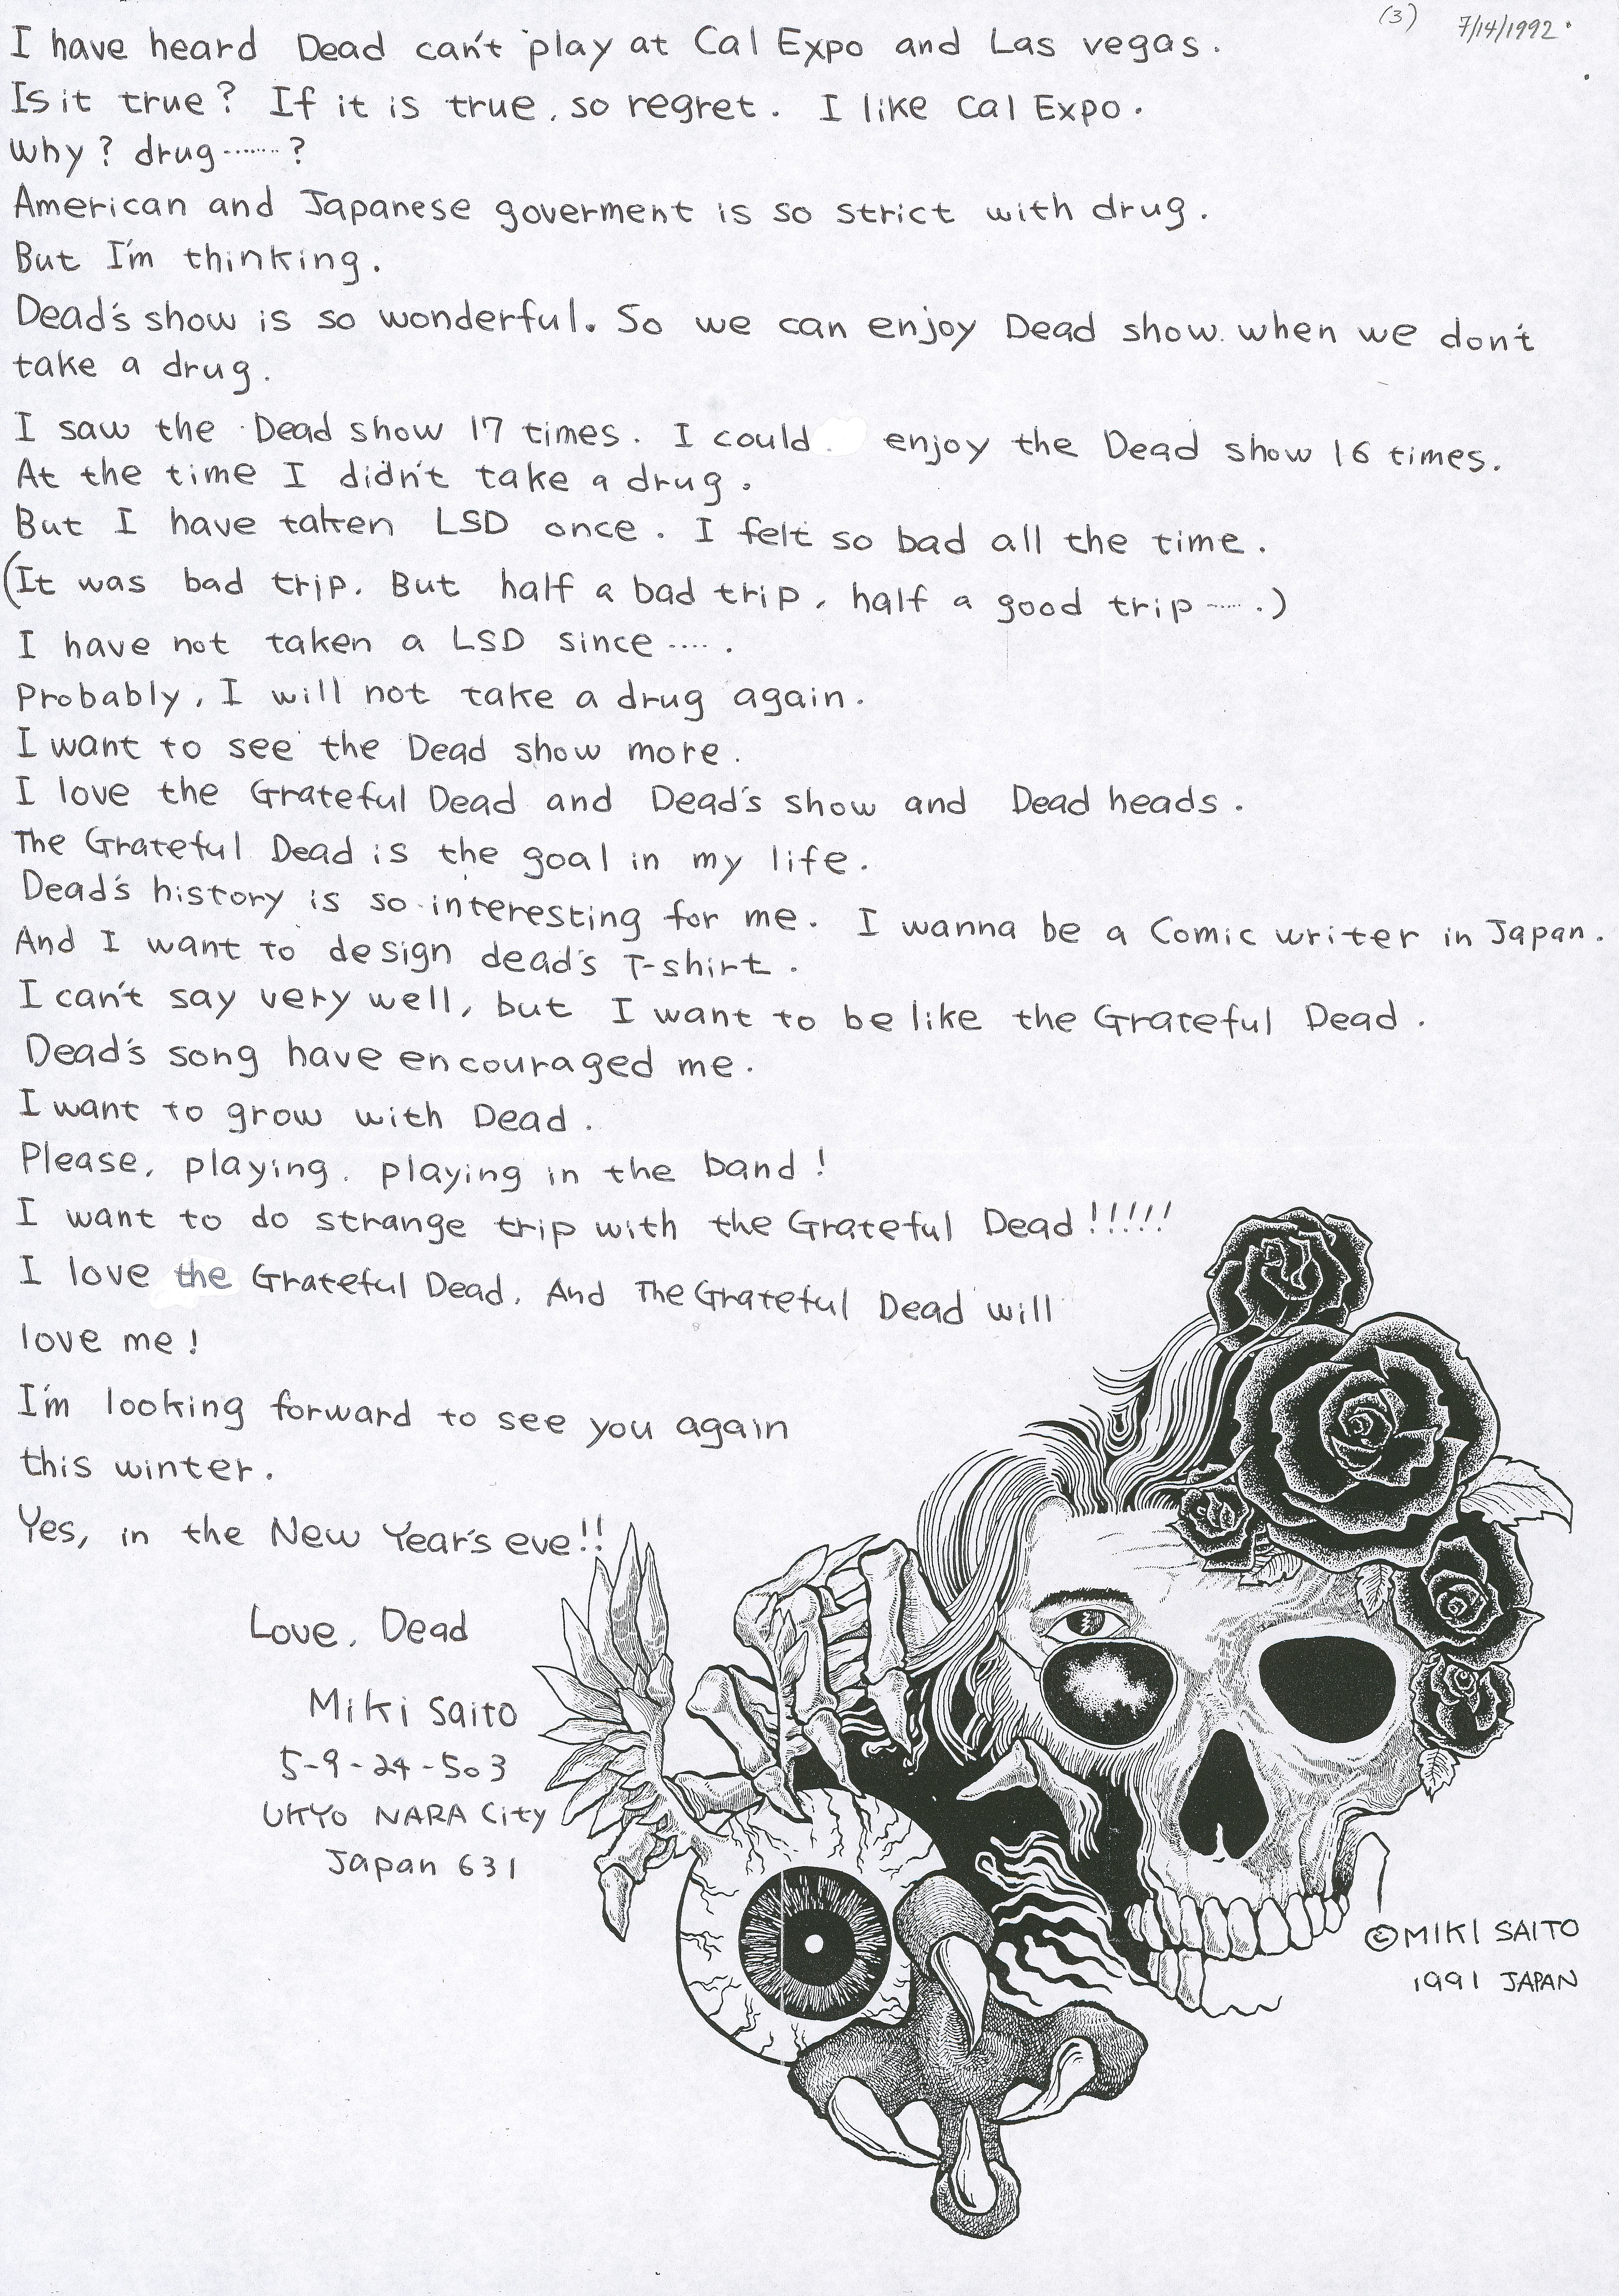 (3) 7/14/1992
I have heard Dead can't play at Cal Expo and Las vegas.
Is it true? If it is true, so regret. I like Cal Expo.
Why? drug.......?
American and Japanese goverment is so strict with drug.
But I'm thinking.
Dead's show is so wonderful. So we can enjoy Dead show when we don't
take a drug.
I saw the Dead show 17 times. I could enjoy the Dead show 16 times.
At the time I didn't take a drug.
But I have taken LSD once. I felt so bad all the time.
(It was bad trip. But half a bad trip, half a good trip.....)
I have not taken a LSD since .....
Probably, I will not take a drug again.
I want to see the Dead show more.
I love the Grateful Dead and Dead's show and Dead heads.
The Grateful Dead is the goal in my life.
Dead's history is so interesting for me. I wanna be a Comic writer in Japan.
And I want to design dead's T-shirt.
I can't say very well, but I want to be like the Grateful Dead.
Dead's song have encouraged me.
I want to grow with Dead.
Please, playing, playing in the band!
I want to do strange trip with the Grateful Dead!!!!!
I love the Grateful Dead. And The Grateful Dead will
love me!
I'm looking forward to see you again
this winter.
Yes, in the New Year's eve!!
Love, Dead
Miki Saito
5-9-24-503
UKYO NARA City
Japan 631
©MIKI SAITO
1991 JAPAN